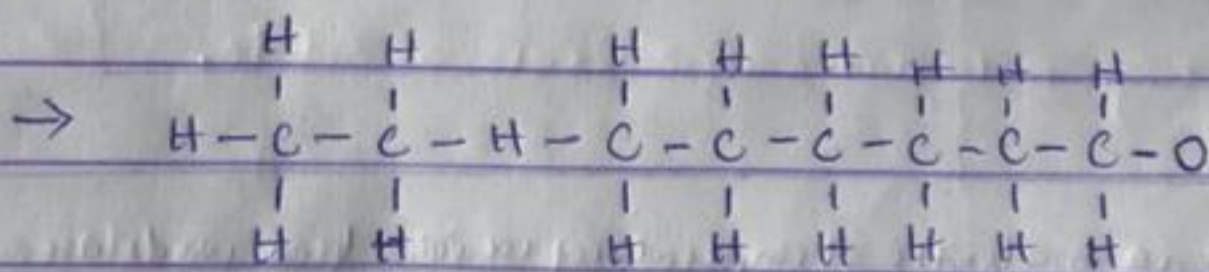 H H H H H H H H
→ H - C - C - H - C - C - C - C - C - C - O
H H H H H H H H